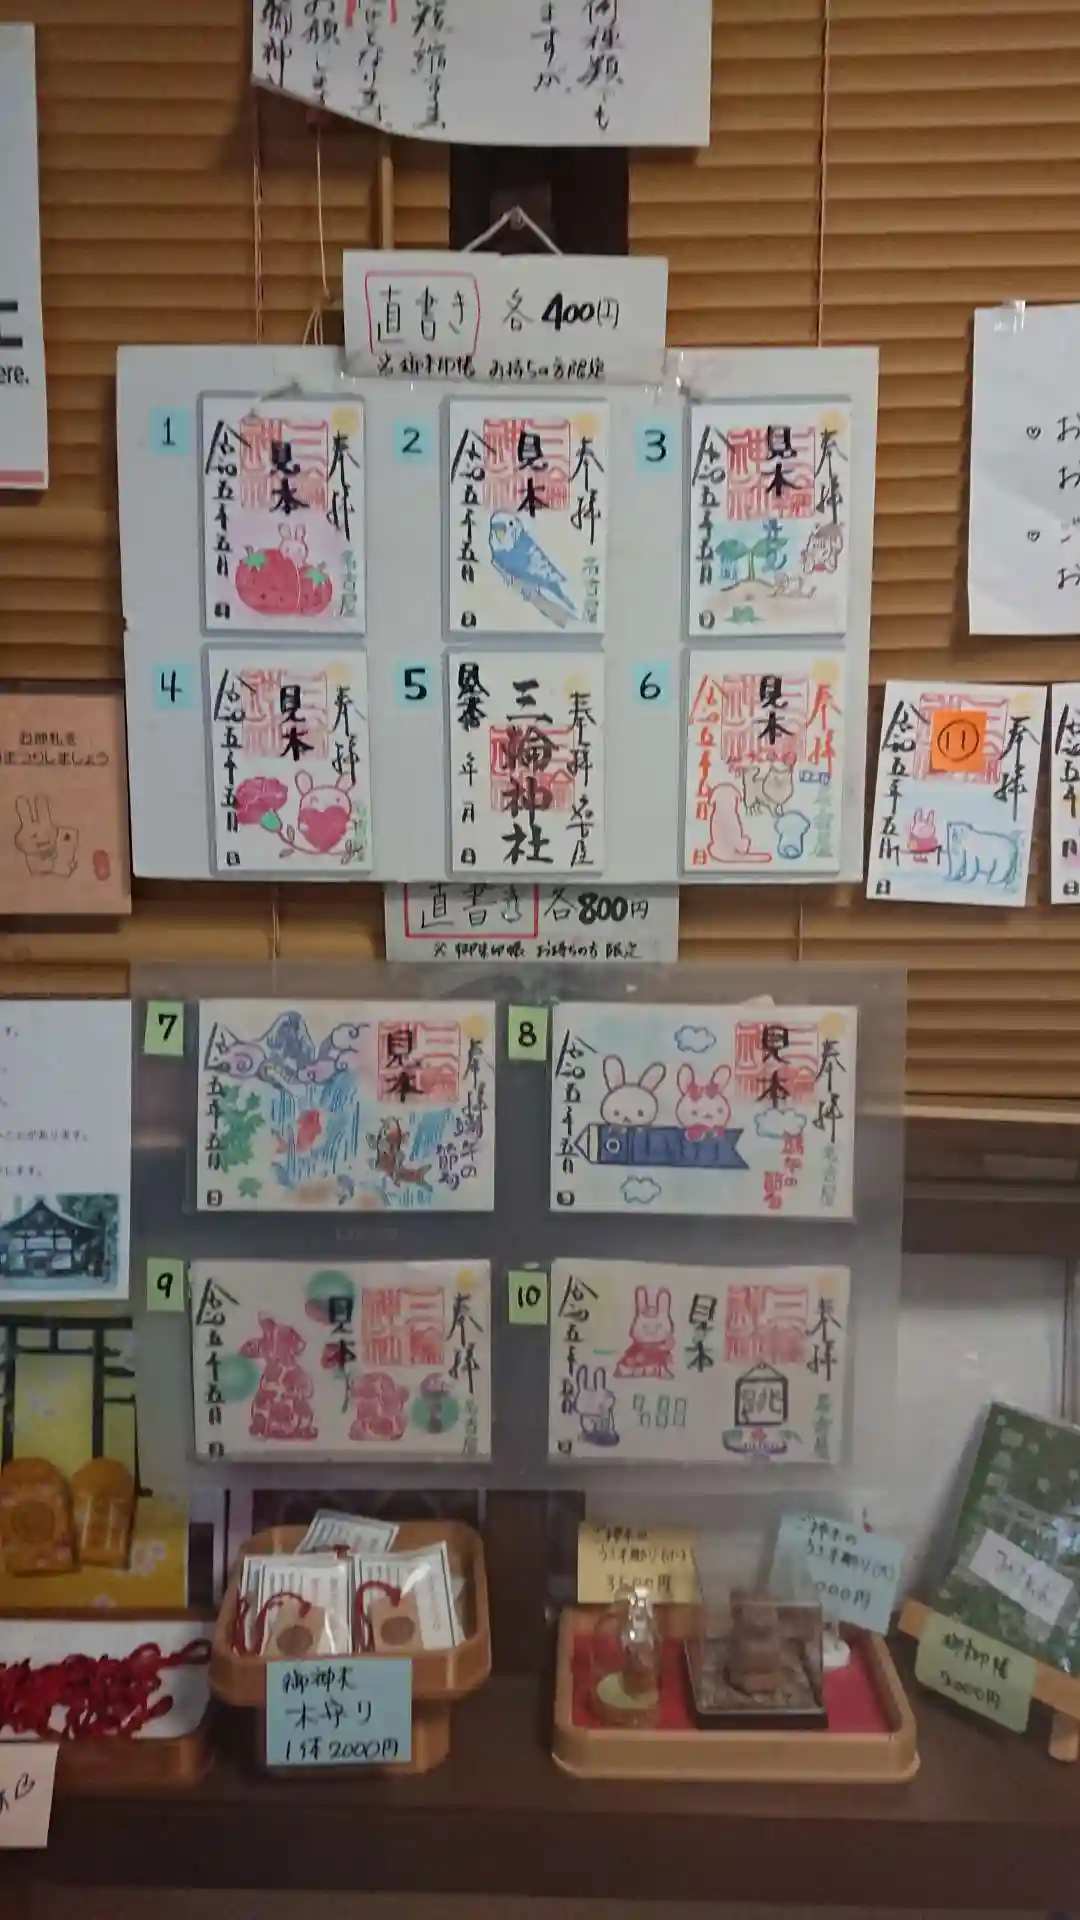 何種類でも
ますが、
直書き 各400円
※御朱印帳 お持ちの方限定
1
奉拝
見本
令和五年五月 日
名古屋
2
奉拝
見本
令和五年五月 日
名古屋
3
奉拝
見本
令和五年五月 日
4
奉拝
見本
令和五年五月 日
名古屋
5
奉拝 名古屋
三輪神社
見本 年 月 日
6
奉拝
見本
令和五年五月 日
名古屋
奉拝
11
令和五年五月 日
直書き 各800円
※御朱印帳 お持ちの方限定
7
奉拝
端午の節句
見本
令和五年五月 日
8
奉拝
名古屋
見本
端午の節句
令和五年五月 日
9
奉拝
名古屋
見本
令和五年五月 日
10
奉拝
名古屋
見本
跳
令和五年五月 日
お御札を
まつりしましょう
ere.
す。
ことがあります。
します。
御神木
木守り
1体2000円
ご神木の
うさぎ彫り(小)
3500円
ご神木の
うさぎ彫り(大)
000円